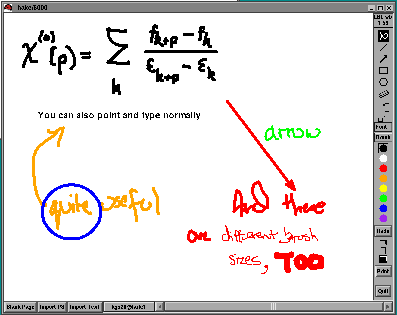 hake/5000
χ⁽⁰⁾(p) = Σ_k (f_{k+p} - f_k) / (ε_{k+p} - ε_k)
You can also point and type normally
arrow
quite useful
And there
are different brush
sizes, TOO
Font
Hide
Print
Quit
Blank Page Import PS Import Text